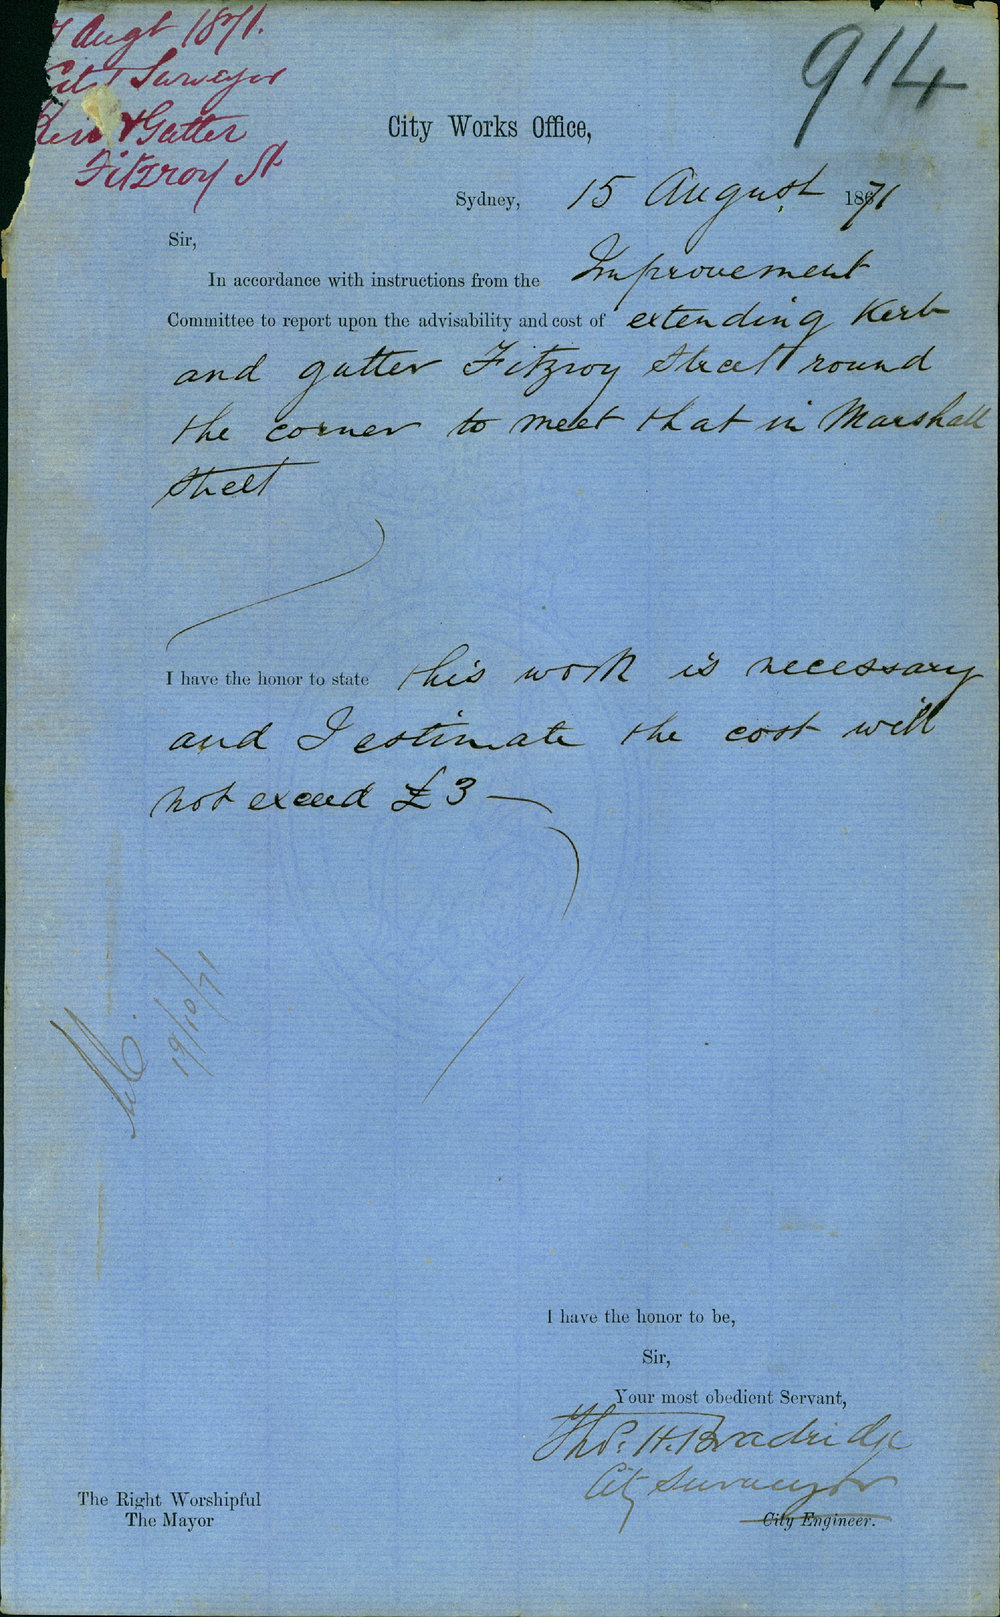 Augt 1871.
914
City Surveyor
Kerb & Gutter
Fitzroy St
City Works Office,
Sydney, 15 August 1871
Sir,
In accordance with instructions from the Improvement
Committee to report upon the advisability and cost of extending Kerb
and gutter Fitzroy Street round
the corner to meet that in Marshall
Street
I have the honor to state this work is necessary
and I estimate the cost will
not exceed £3
19/10/71
I have the honor to be,
Sir,
Your most obedient Servant,
Thos. H. Bradridge
City Surveyor
City Engineer.
The Right Worshipful
The Mayor